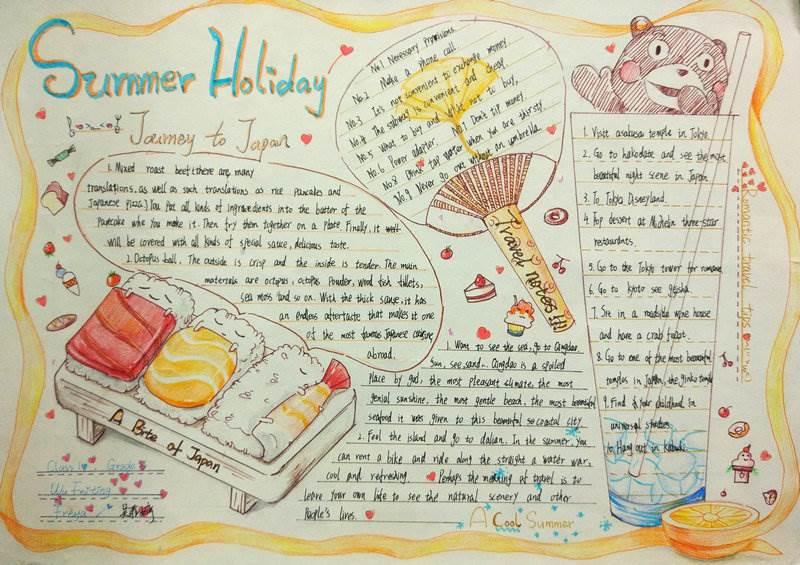 Summer Holiday
Journey to Japan
1. Mixed roast beef (there are many
translations, as well as such translations as rice pancakes and
Japanese pizza.) You put all kinds of ingredients into the batter of the
pancake whe you make it. Then fry them together on a plate. Finally, it well
will be covered with all kinds of special sauce, delicious taste.
2. Octopus ball. The outside is crisp and the inside is tender. The main
materials are octopus, octopus powder, wood fish fillets,
sea moss and so on. With the thick sauce, it has
an endless aftertaste that makes it one
of the most famous Japanese cuisine
abroad.
A Bite of Japan
Class Grade
Freya
No.1 Necessary provisions
No.2 Make a phone call.
No.3 It's not convenient to exchange money
No.4 The subway is convenient and cheap.
No.5 What to buy and what not to buy,
No.6 Power adapter. No.7 Don't tip money
No.8 Drink tap water when you are thirsty
No.9 Never go out without an umbrella.
Travel notes!!!
1. Want to see the sea, go to Qingdao
Sun, sea, sand... Qingdao is a spoiled
place by god, the most pleasant climate, the most
genial sunshine, the most gentle beach, the most beautiful
seafood it was given to this beautiful seacoastal city
2. Feel the island and go to dalian. In the summer, you
can rent a bike and ride along the straight a water war,
cool and refreshing. Perhaps the meaning of travel is to
leave your own life to see the natural scenery and other
people's lives.
A Cool Summer
1. Visit asakusa temple in Tokyo.
2. Go to hakodate and see the most
beautiful night scene in Japan
3. To Tokyo Disneyland.
4. Pop dessert at Michelin three-star
restaurants.
5. Go to the Tokyo tower for romance
6. Go to kyoto see geisha.
7. Sit in a roadside wine house
and have a crab feast.
8. Go to one of the most beautiful
temples in Japan, the ginko temple
9. Find your childhood in
universal studios
10. Hang out in Kabuki.
Romantic travel tips